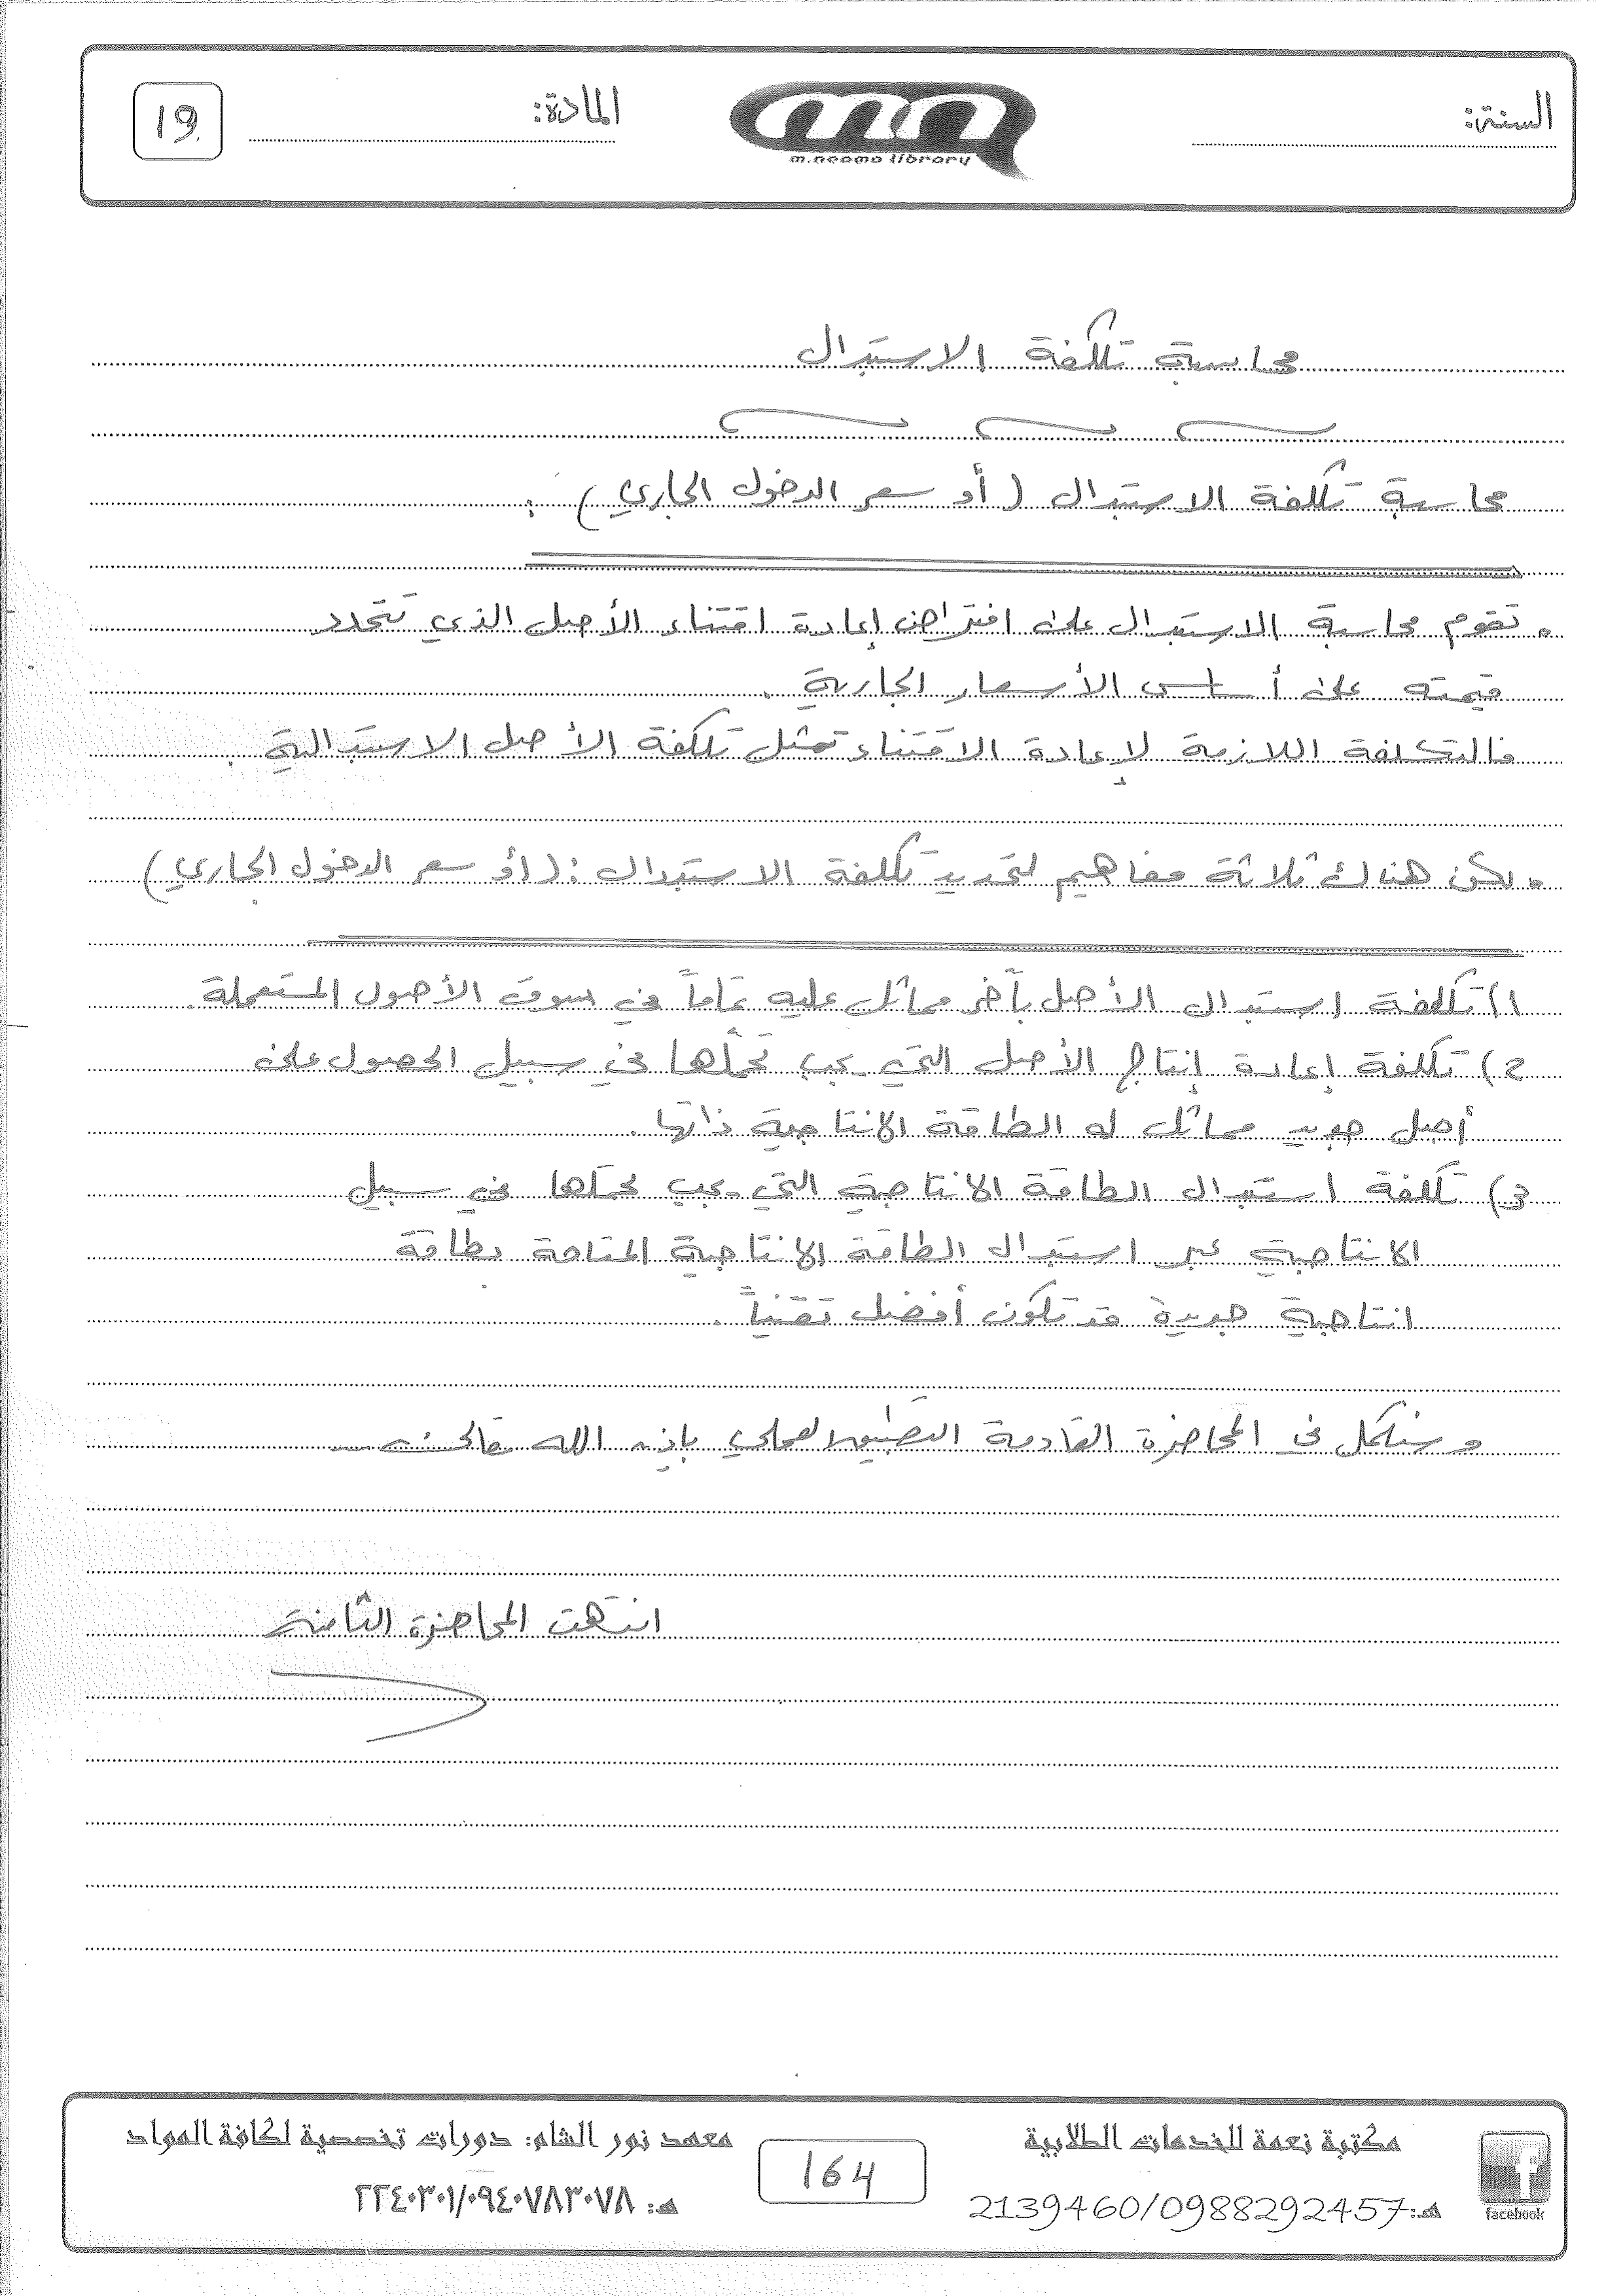 السنة:
m.neama library
المادة:
19
محاسبة تكلفة الاستبدال
محاسبة تكلفة الاستبدال (أو سعر الدخول الجاري):
. تقوم محاسبة الاستبدال على افتراض إعادة اقتناء الأصل الذي تتحدد
قيمته على أساس الأسعار الجارية .
فالتكلفة اللازمة لإعادة الاقتناء تمثل تكلفة الأصل الاستبدالية .
. لكن هناك ثلاثة مفاهيم لتحديد تكلفة الاستبدال : (أو سعر الدخول الجاري)
1) تكلفة استبدال الأصل بآخر مماثل عليه تماماً في سوق الأصول المستعملة.
2) تكلفة إعادة إنتاج الأصل التي يجب تحملها في سبيل الحصول على
أصل جديد مماثل له الطاقة الانتاجية ذاتها .
3) تكلفة استبدال الطاقة الانتاجية التي يجب تحملها في سبيل
الانتاجية عبر استبدال الطاقة الانتاجية المتاحة بطاقة
انتاجية جديدة قد تكون أفضل تقنياً .
و سنكمل في المحاضرة القادمة التطبيق العملي بإذن الله تعالى
انتهت المحاضرة الثامنة
facebook
مكتبة نعمة للخدمات الطلابية
هـ:2139460/0988292457
164
معهد نور الشام: دورات تخصصية لكافة المواد
هـ: ٢٢٤٠٣٠١/٠٩٤٠٧٨٣٠٧٨